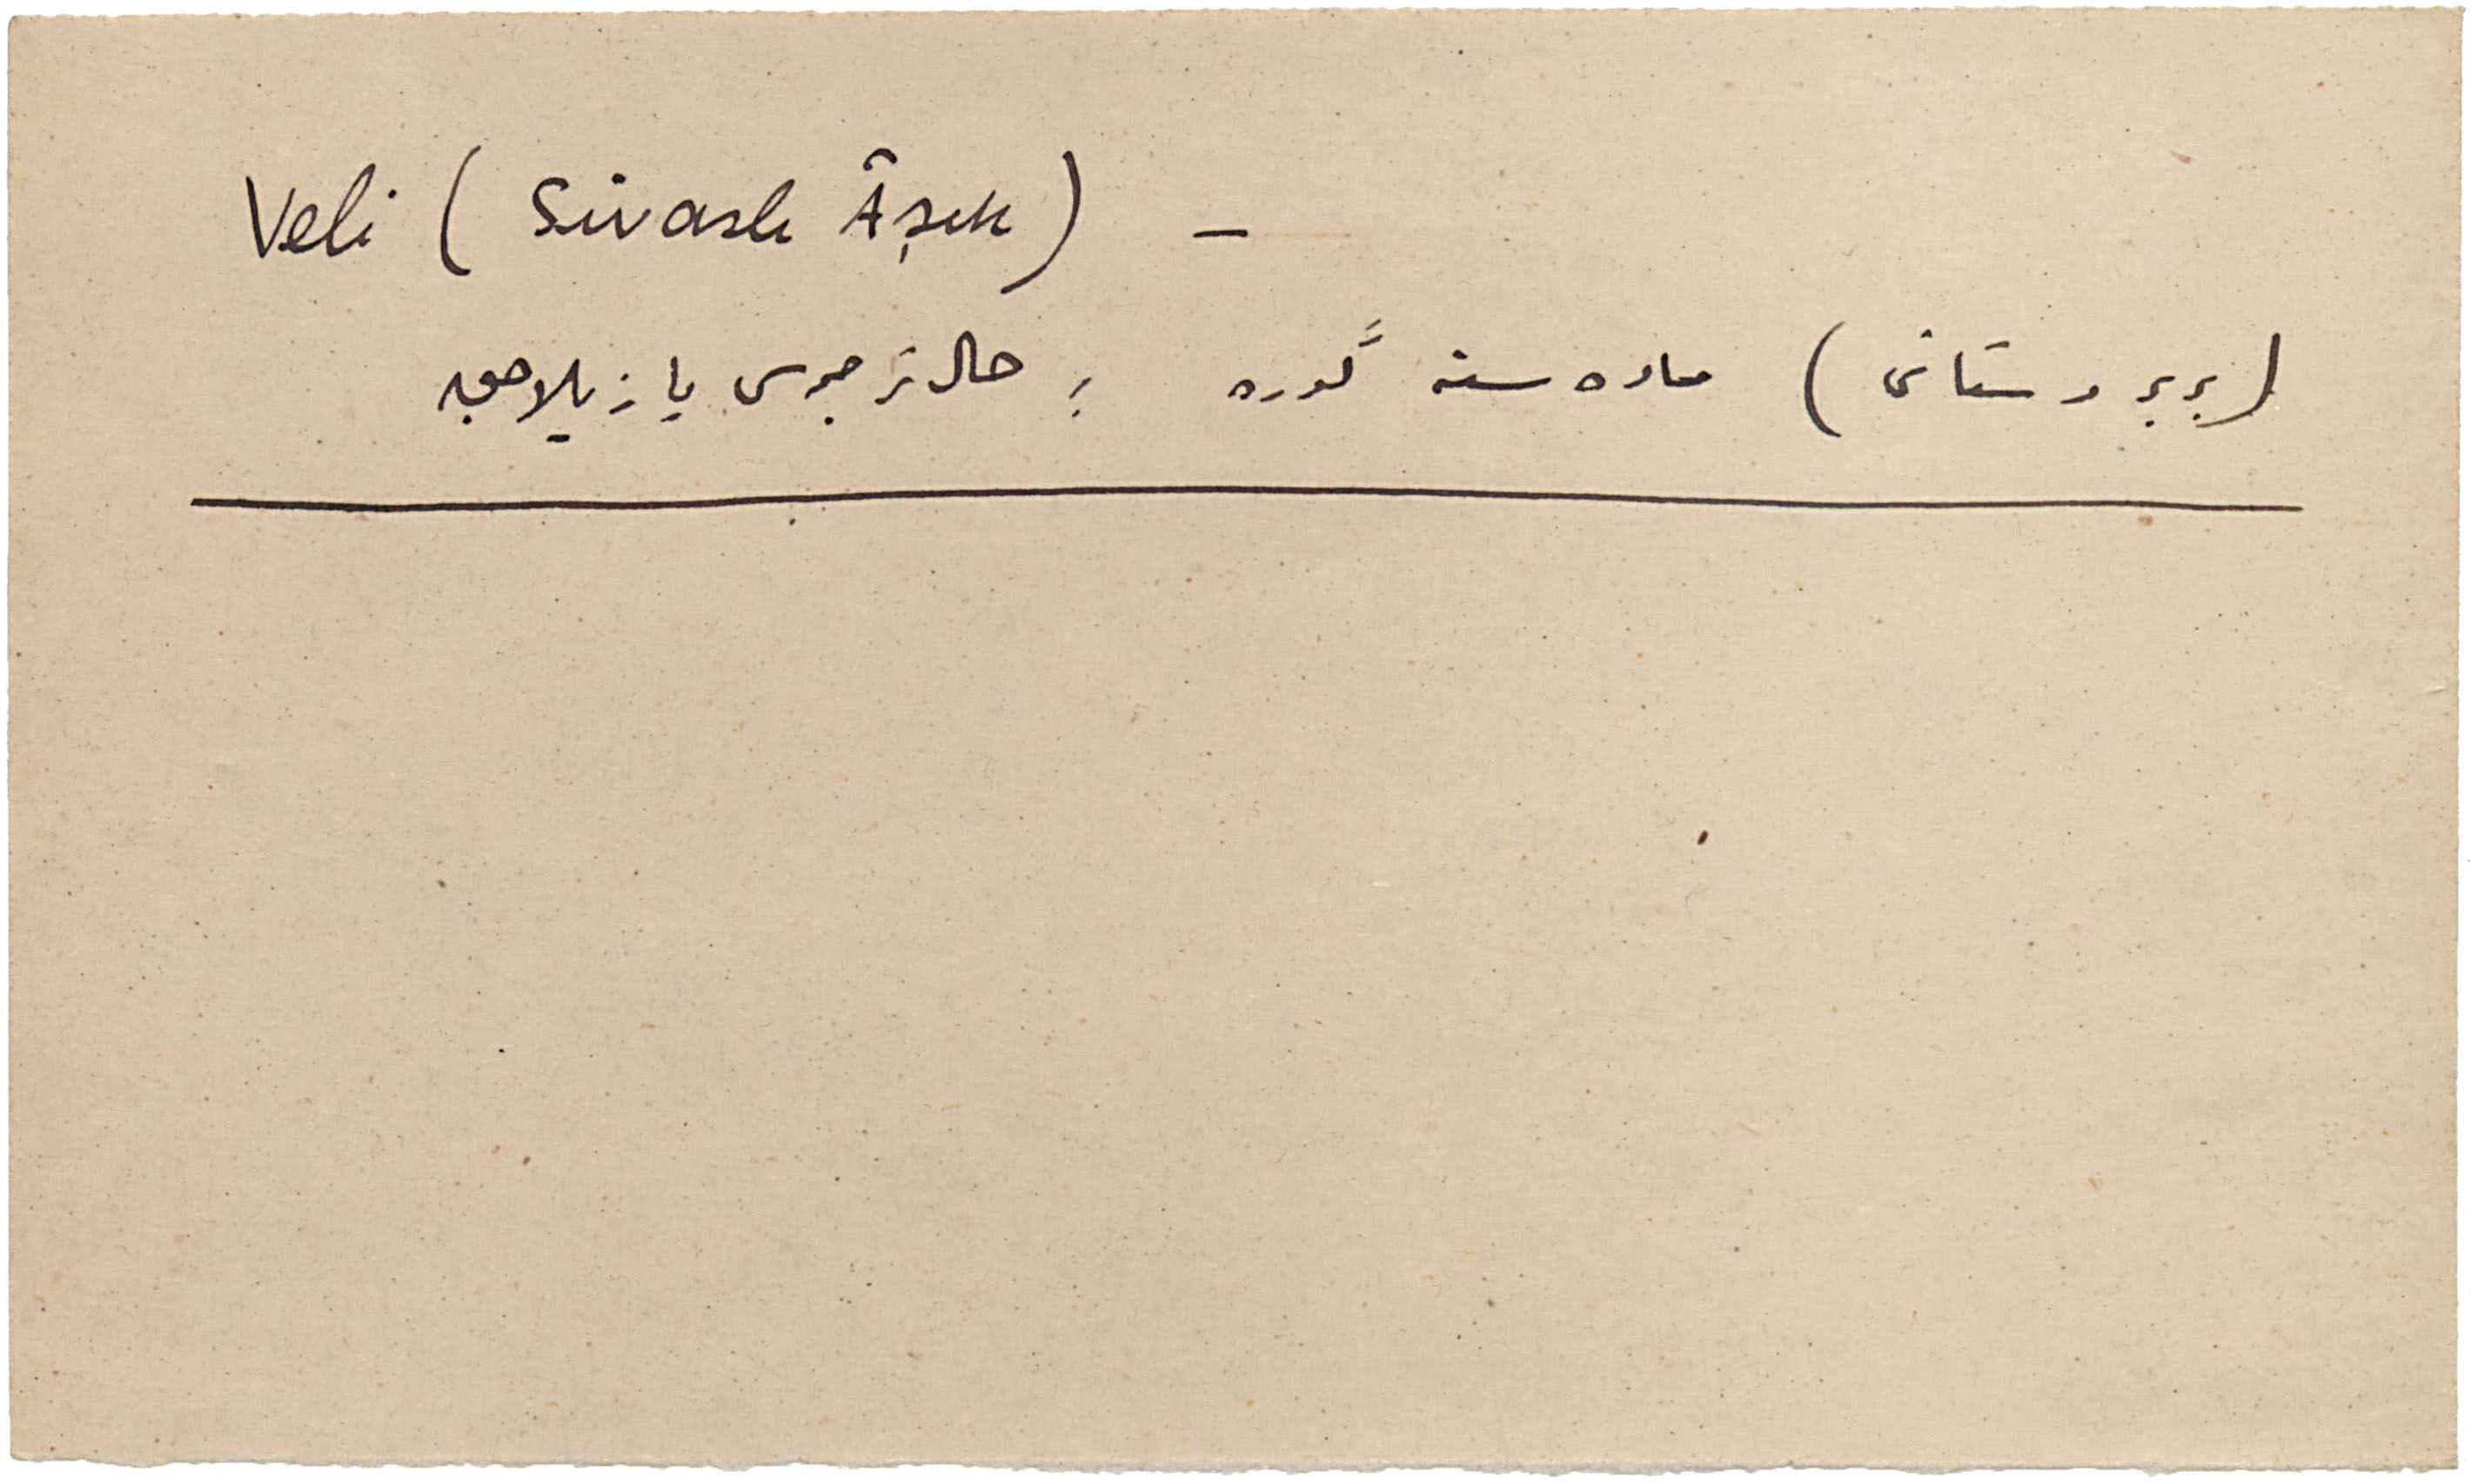 Veli (Sivaslı Âşık) –
(بربر دستانی) ماده سنه گوره ؛ حال ترجمه سی یازیلاجق